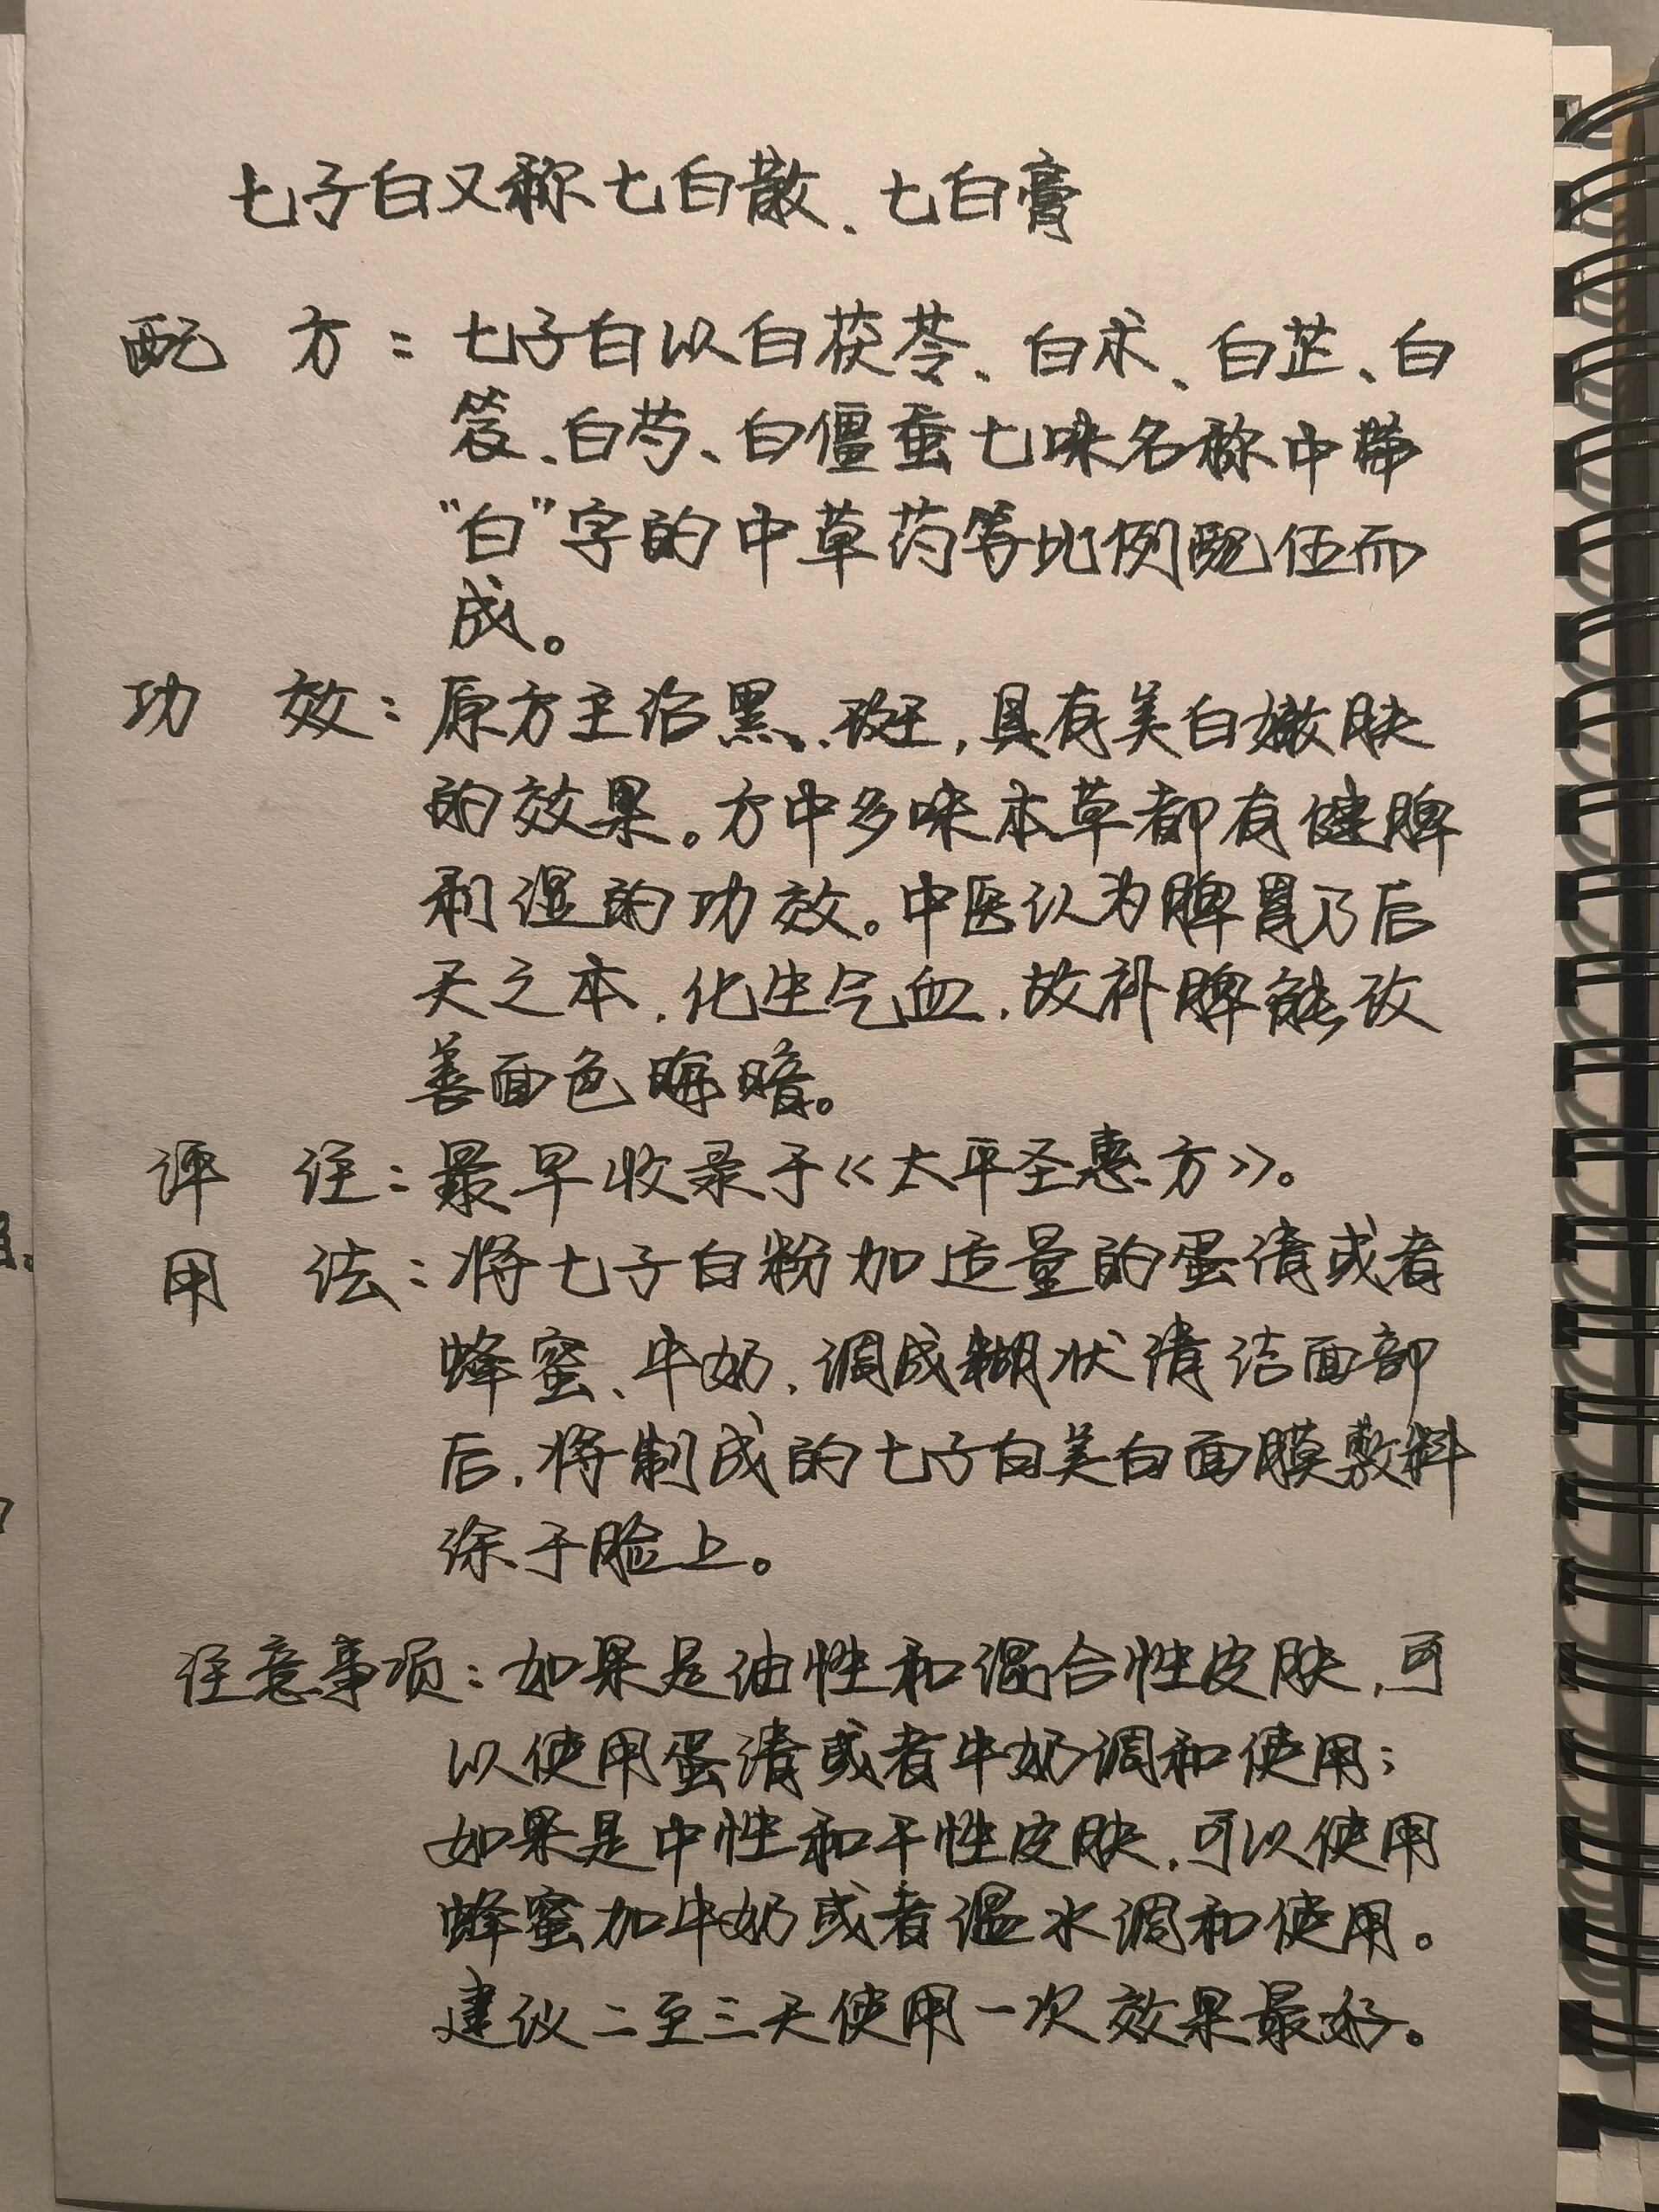 七子白又称七白散、七白膏
配 方：七子白以白茯苓、白术、白芷、白
笈、白芍、白僵蚕七味名称中带
“白”字的中草药等比例配伍而
成。
功 效：原方主治黑斑，具有美白嫩肤
的效果。方中多味本草都有健脾
利湿的功效。中医认为脾胃乃后
天之本，化生气血，故补脾能改
善面色晦暗。
评 注：最早收录于《太平圣惠方》。
用 法：将七子白粉加适量的蛋清或者
蜂蜜、牛奶，调成糊状清洁面部
后，将制成的七子白美白面膜敷料
涂于脸上。
注意事项：如果是油性和混合性皮肤，可
以使用蛋清或者牛奶调和使用；
如果是中性和干性皮肤，可以使用
蜂蜜加牛奶或者温水调和使用。
建议二至三天使用一次效果最好。